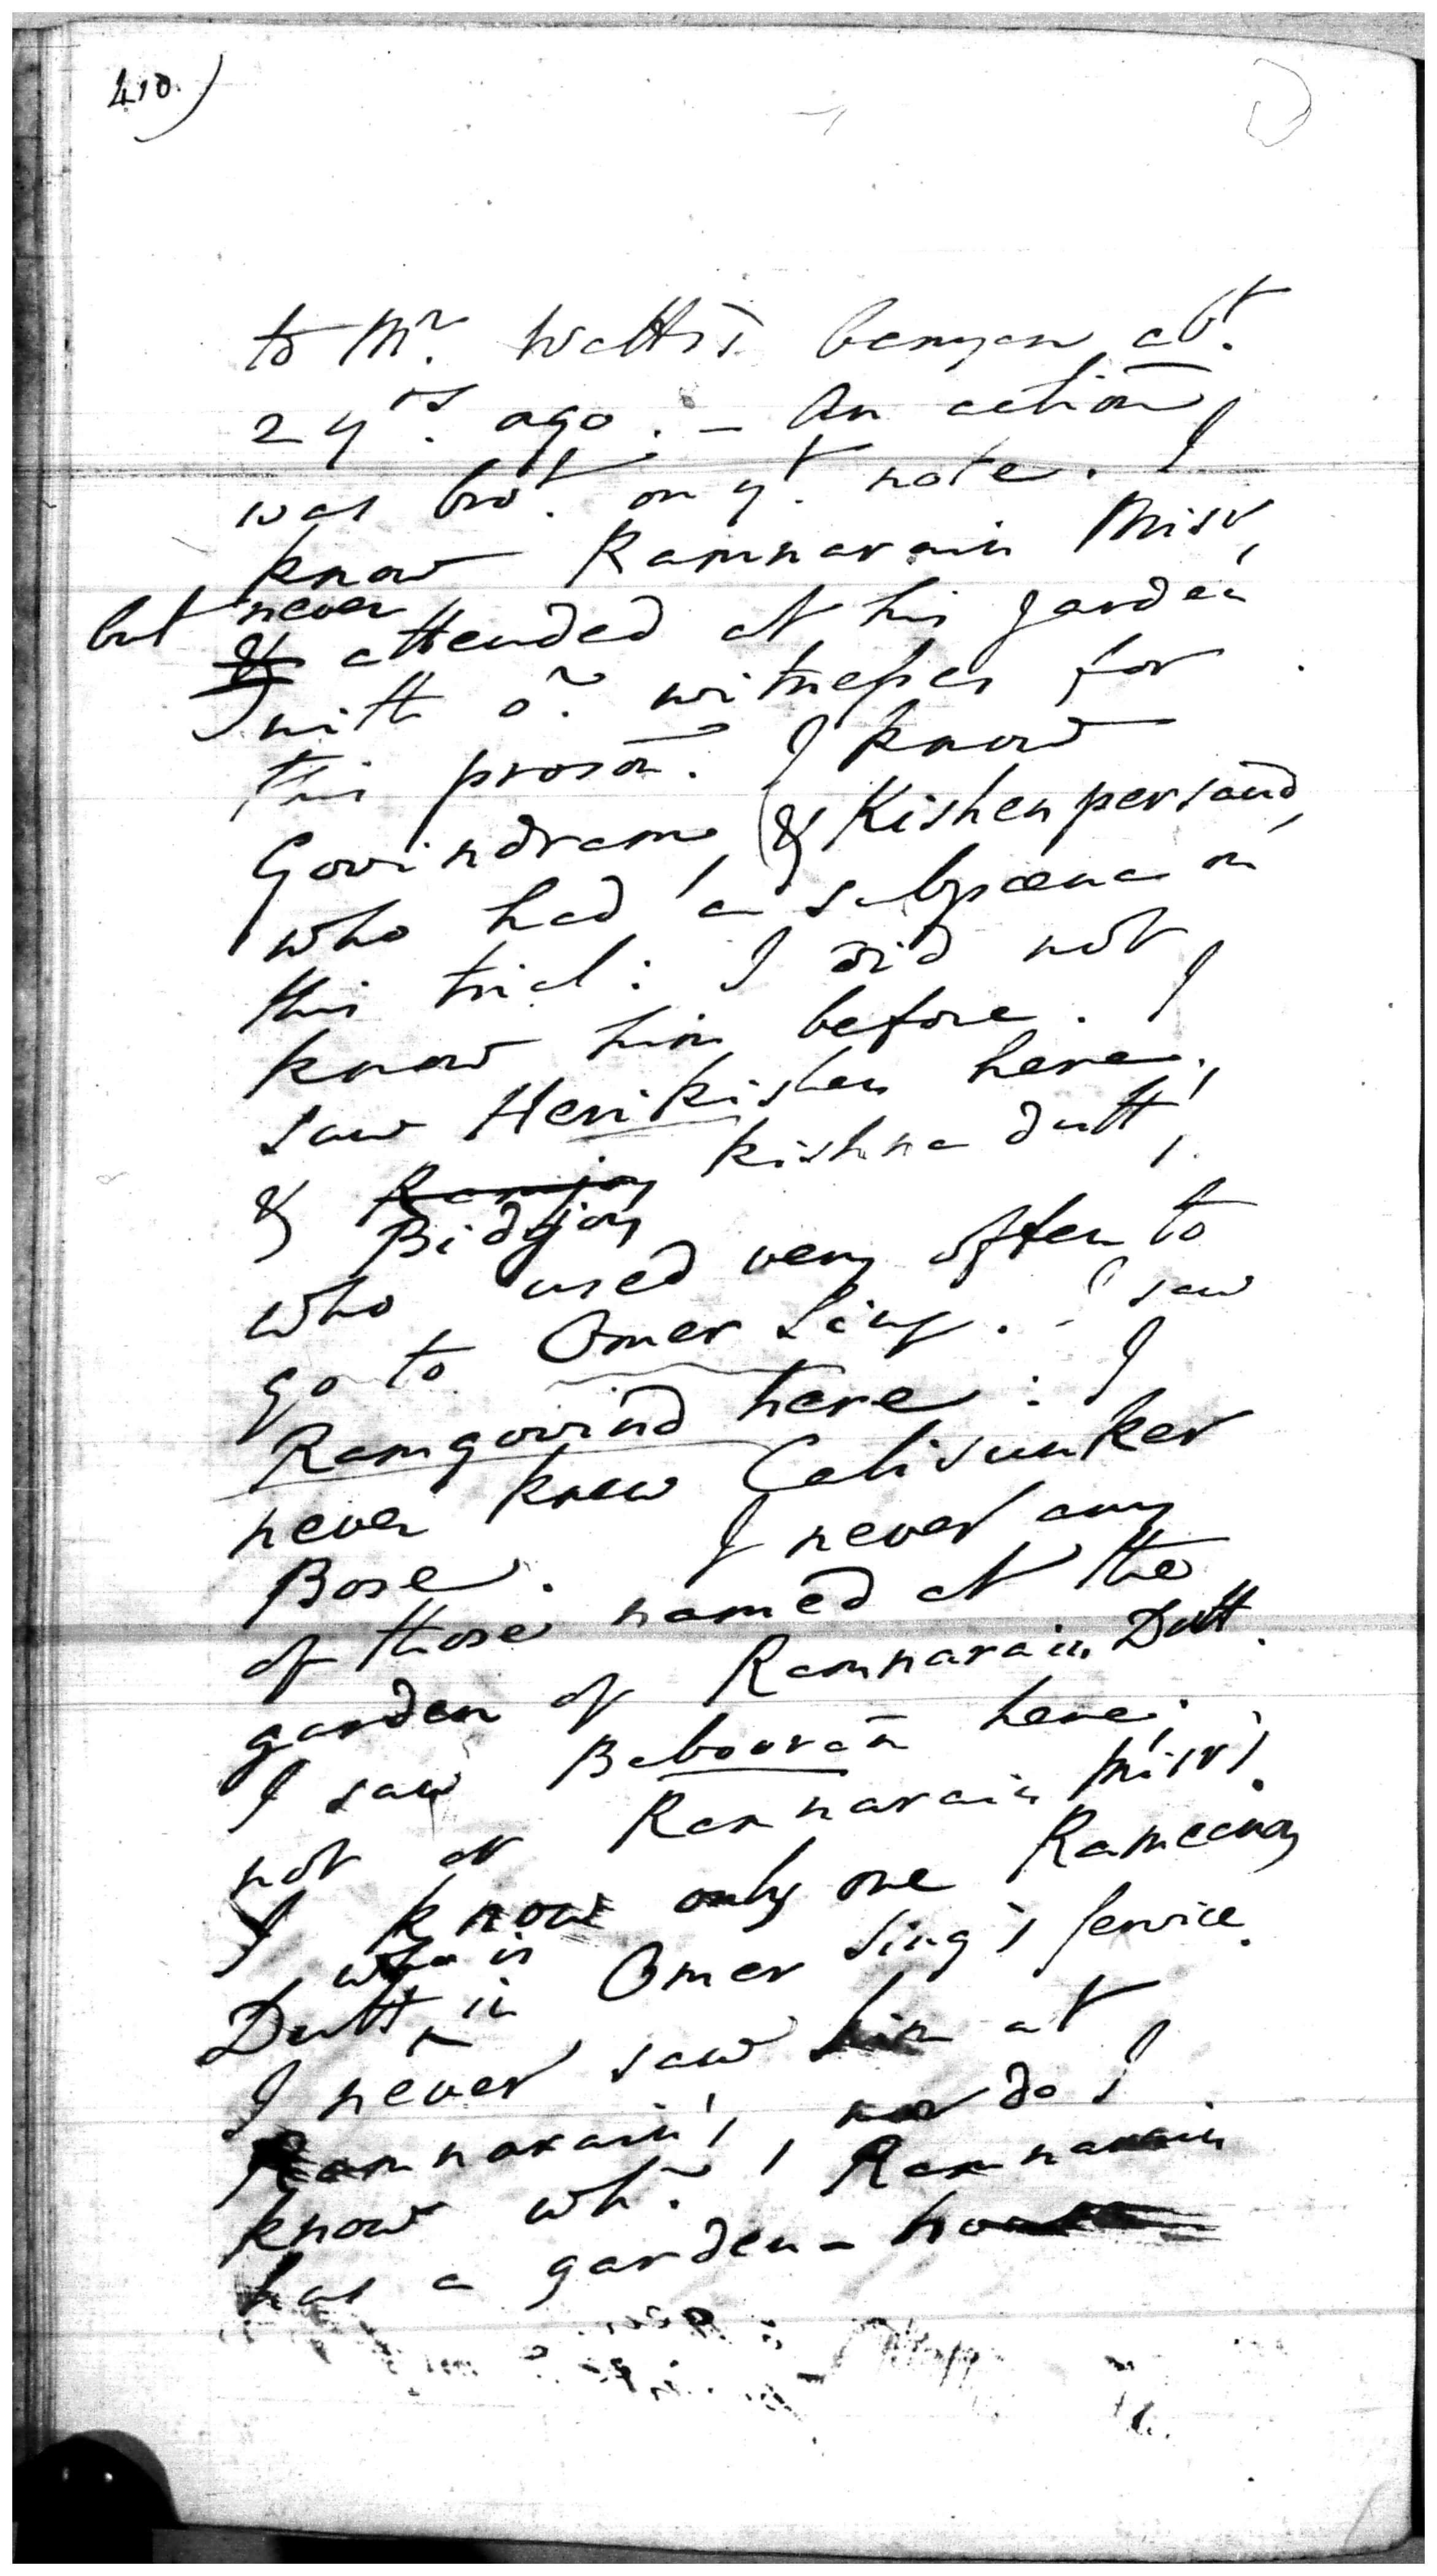 410.)
to Mr. Watts's banyan abt.
2 yrs. ago. – An action
was brot. on yt. note. I
know Ramnarain Misr,
but never
& attended at his garden
with or. witnesses for
this proson. I know
Govindram, & Kishenpersaud,
who had a subpœna on
this trial: I did not
know him before. I
saw Herikishen here,
& Ramjoy Kishna dutt,
Bidjoy
who used very often to
go to Omer Sing. I saw
Ramgovind here: I
never knew Calisunker
Bose. I never any
of those named at the
garden of Ramnarain Dutt.
I saw Babouran here;
not at Ramnarain Misr's.
I know only one Ramcanoy
who is
Dutt, in Omer Sing's service.
I never saw him at
Ramnarain's, nor do I
know whr. Ramnarain
has a garden-